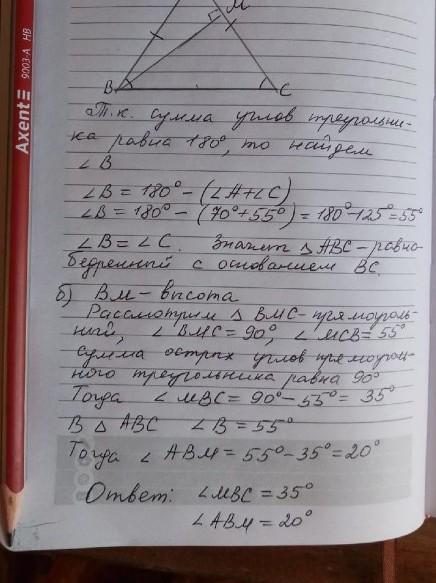 Axent 9003-А НВ
М
В
С
а) Т.к. сумма углов треугольни-
ка равна 180°, то найдем
∠ B
∠ B = 180° - (∠A+∠C)
∠ B = 180° - (70°+55°) = 180°-125°=55°
∠ B = ∠ C. Значит △ ABC - равно-
бедренный с основанием BC.
б) BM - высота
Рассмотрим △ BMC - прямоуголь-
ный, ∠ BMC = 90°, ∠ MCB = 55°
сумма острых углов прямоуголь-
ного треугольника равна 90°
Тогда ∠ MBC = 90° - 55° = 35°
В △ ABC ∠ B = 55°
Тогда ∠ ABM = 55° - 35° = 20°
Ответ: ∠ MBC = 35°
∠ ABM = 20°